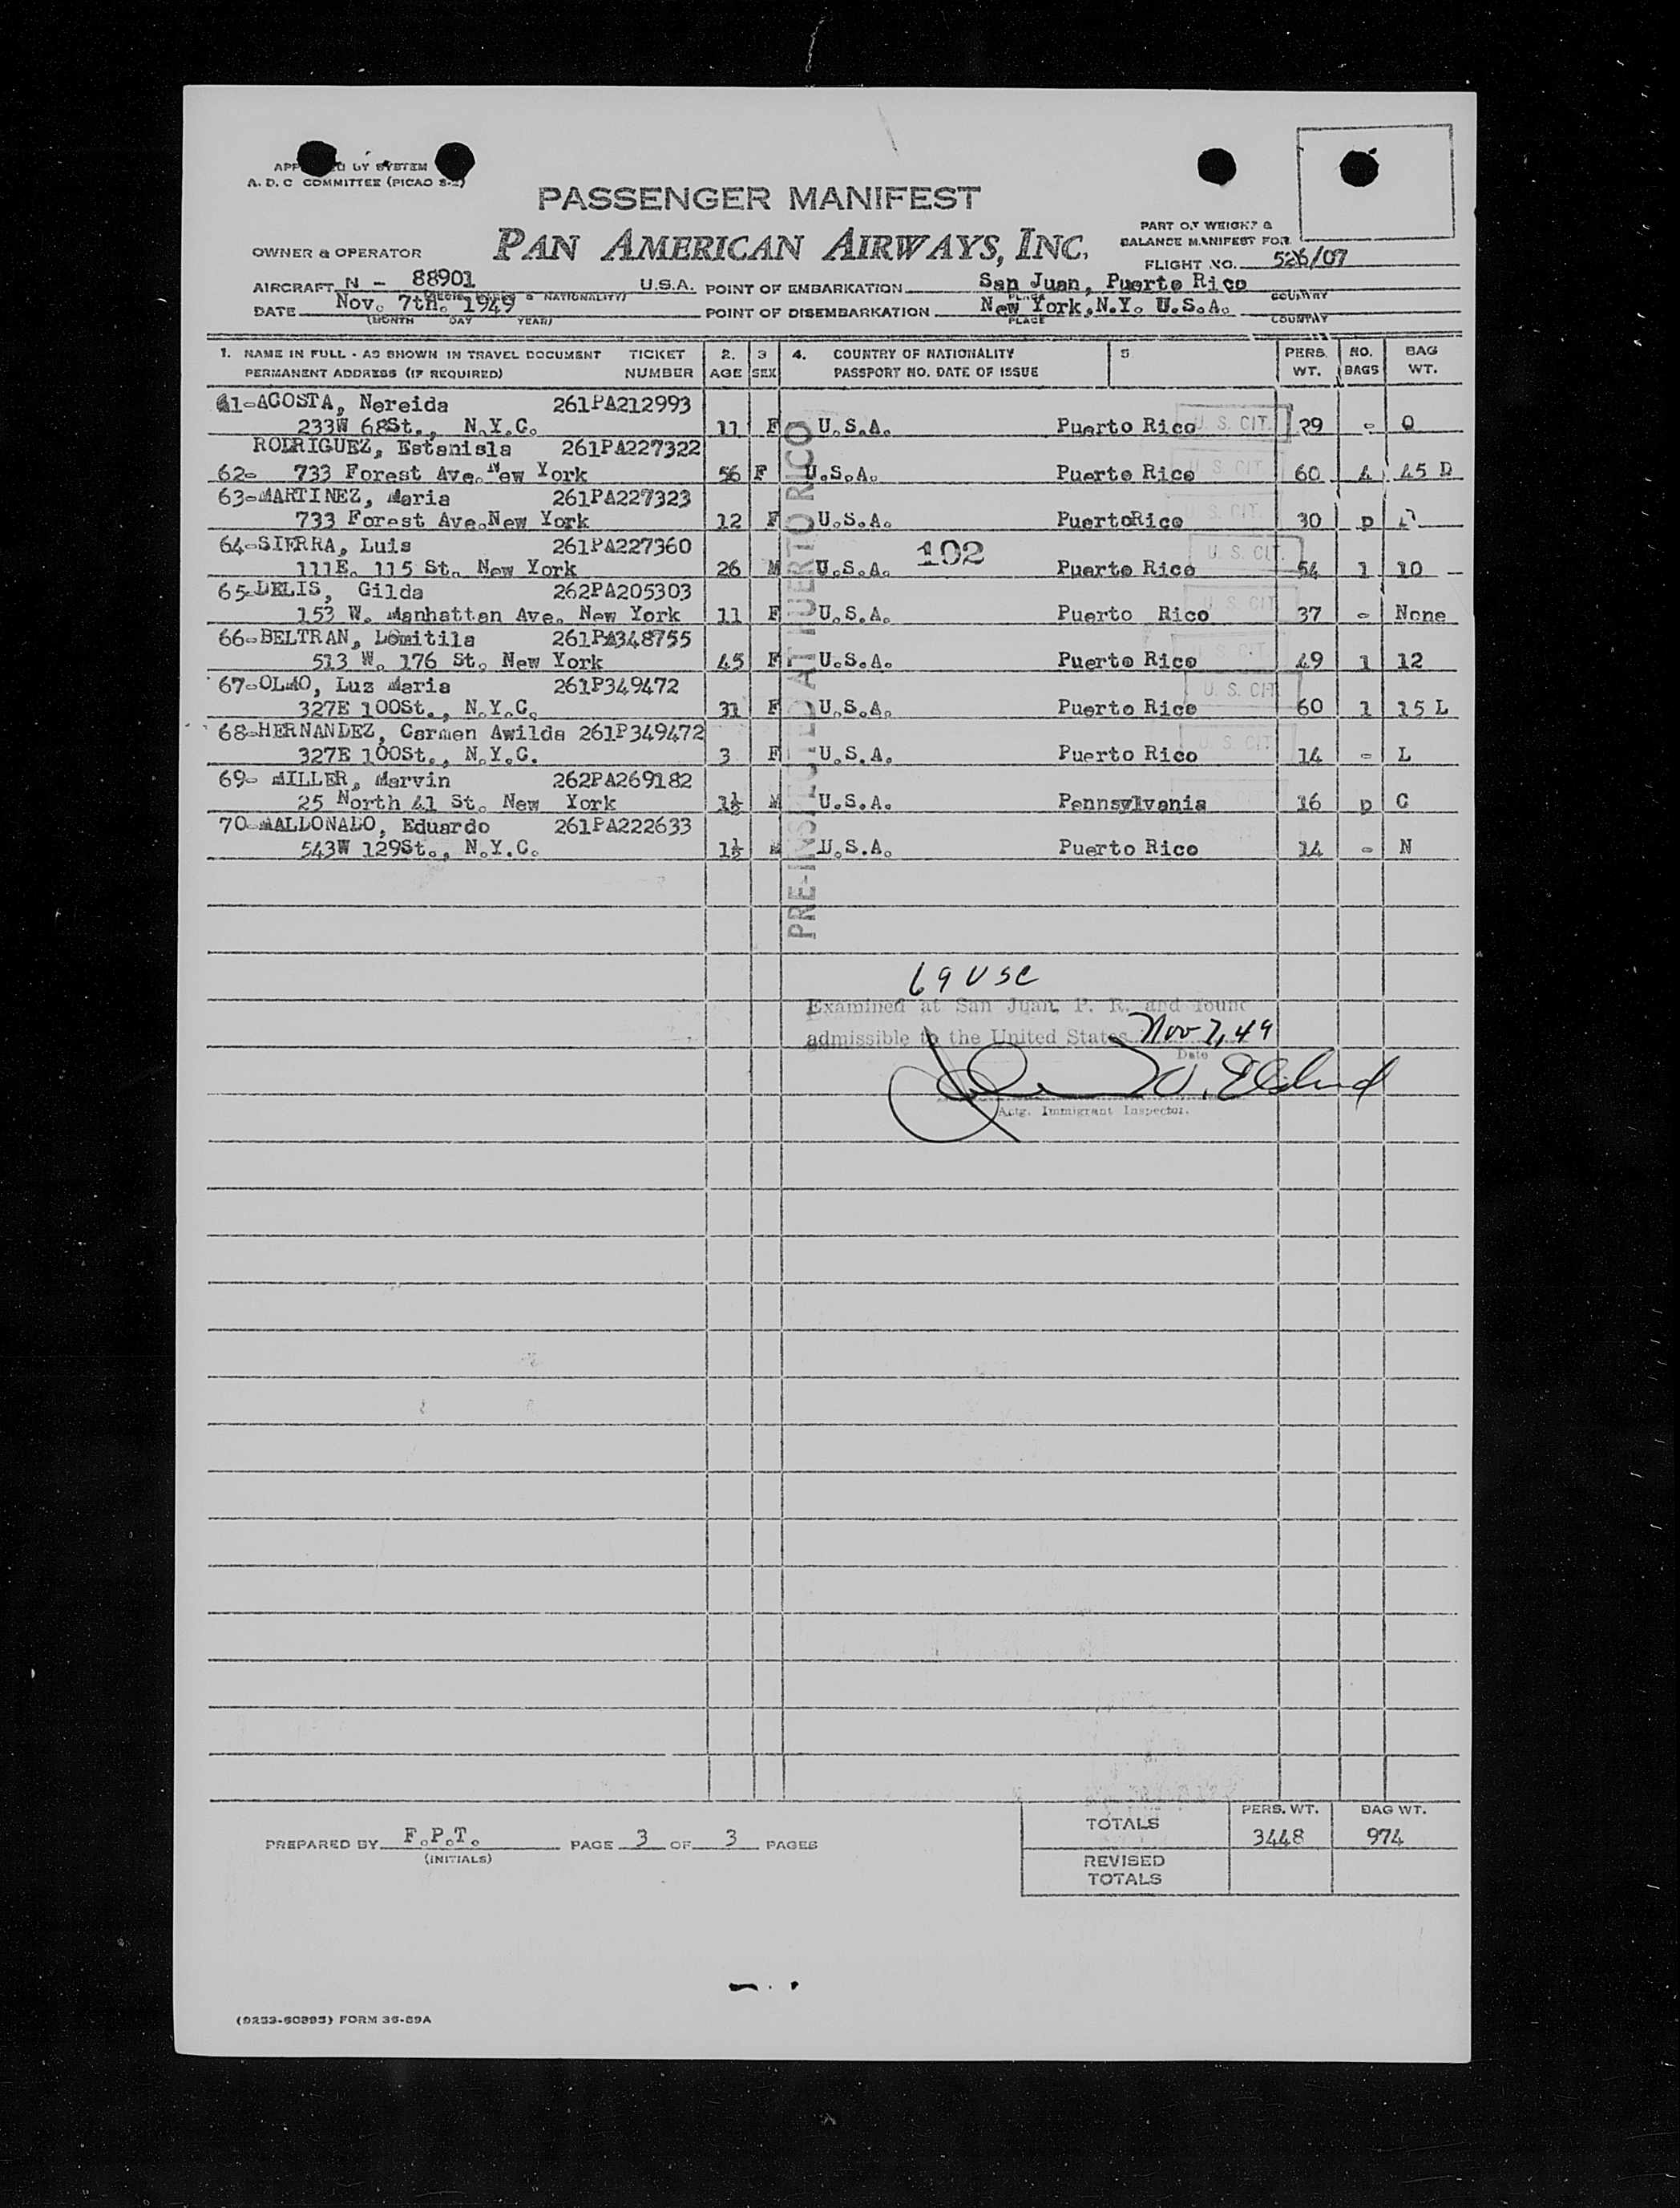 A. D. C COMMITTEE (PICAO S-2)
PASSENGER MANIFEST
PART OF WEIGHT &
BALANCE MANIFEST FOR
OWNER & OPERATOR PAN AMERICAN AIRWAYS, INC.
FLIGHT NO. 526/07
AIRCRAFT N - 88901 U.S.A. POINT OF EMBARKATION San Juan, Puerto Rico
& NATIONALITY) PLACE COUNTRY
DATE Nov. 7th. 1949 POINT OF DISEMBARKATION New York,N.Y. U.S.A.
(MONTH DAY YEAR) PLACE COUNTRY
1. NAME IN FULL - AS SHOWN IN TRAVEL DOCUMENT TICKET 2. 3 4. COUNTRY OF NATIONALITY 5 PERS. NO. BAG
PERMANENT ADDRESS (IF REQUIRED) NUMBER AGE SEX PASSPORT NO. DATE OF ISSUE WT. BAGS WT.
61-ACOSTA, Nereida 261PA212993
233W 68St., N.Y.C. 11 F U.S.A. Puerto Rico U. S. CIT. 29 - O
RODRIGUEZ, Estanisla 261PA227322
62- 733 Forest Ave.New York 56 F U.S.A. Puerto Rico U. S. CIT. 60 4 45 D
63-MARTINEZ, Maria 261PA227323
733 Forest Ave.New York 12 F U.S.A. PuertoRico U. S. CIT. 30 D
64-SIERRA, Luis 261PA227360
111E. 115 St. New York 26 M U.S.A. 102 Puerto Rico U. S. CIT. 54 1 10
65-DELIS, Gilda 262PA205303
153 W. Manhattan Ave. New York 11 F U.S.A. Puerto Rico U. S. CIT 37 - None
66-BELTRAN, Domitila 261PA348755
513 W. 176 St. New York 45 F U.S.A. Puerto Rico U. S. CIT 49 1 12
67-OLMO, Luz Maria 261P349472
327E 100St., N.Y.C. 31 F U.S.A. Puerto Rico U. S. CIT 60 1 15 L
68-HERNANDEZ, Carmen Awilda 261P349472
327E 100St., N.Y.C. 3 F U.S.A. Puerto Rico U. S. CIT 14 - L
69- MILLER, Marvin 262PA269182
25 North 41 St. New York 1½ M U.S.A. Pennsylvania 16 D C
70-MALDONADO, Eduardo 261PA222633
543W 129St., N.Y.C. 1½ M U.S.A. Puerto Rico 14 - N
PRE-INSPECTED AT PUERTO RICO
69 USC
Examined at San Juan, P. R. and found
admissible to the United States Nov 7, 49
Date
Actg. Immigrant Inspector.
TOTALS PERS. WT. BAG WT.
3448 974
PREPARED BY F.P.T. PAGE 3 OF 3 PAGES
(INITIALS)
REVISED
TOTALS
FORM 36-89A